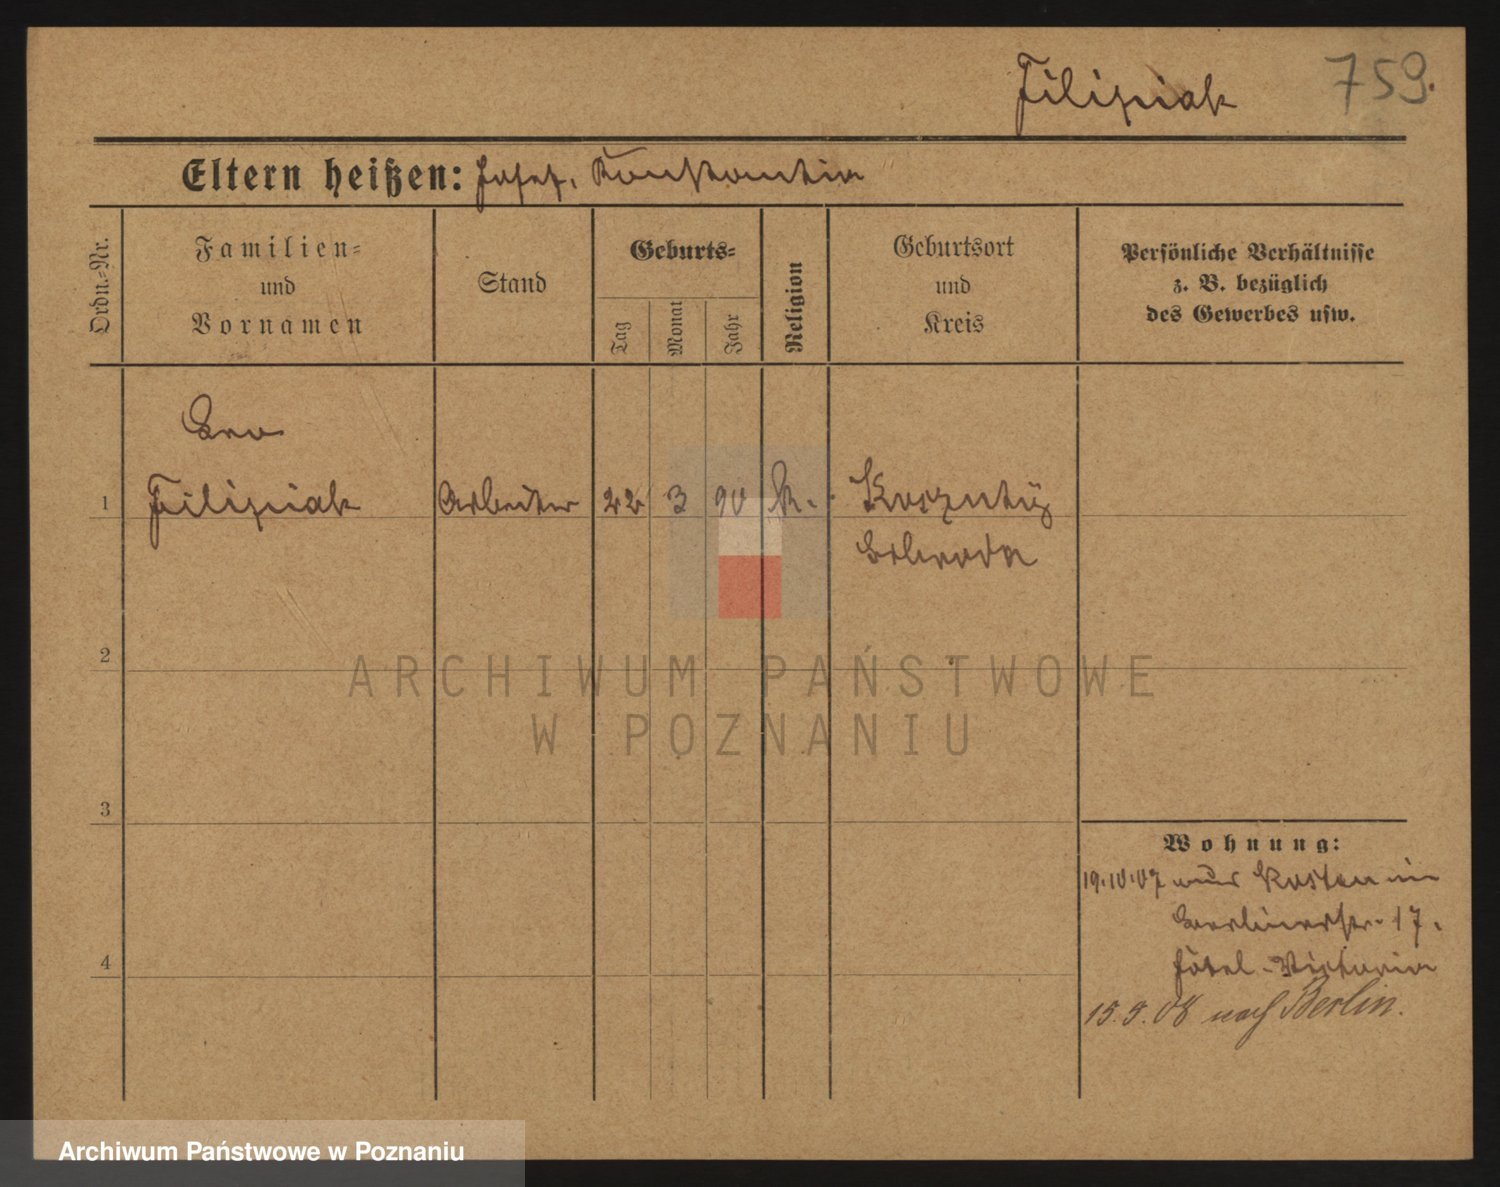 Filipiak 759.
Eltern heißen: Josef, Konstantia
Ordn.=Nr.
Familien=
und
Vornamen
Stand
Geburts=
Tag
Monat
Jahr
Religion
Geburtsort
und
Kreis
Persönliche Verhältnisse
z. B. bezüglich
des Gewerbes usw.
1
Filipiak Arbeiter 22 3 90 K.
Schroda
2
3
4
Wohnung:
19.10.07 aus Kosten in
Berlinerstr. 17.
Hôtel-Victoria
15.5.08 nach Berlin.
ARCHIWUM PAŃSTWOWE
W POZNANIU
Archiwum Państwowe w Poznaniu